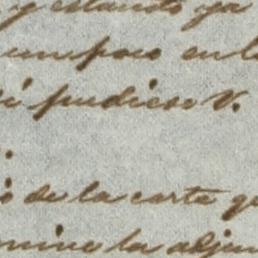 y estando ya
un poco en l
si pudiese V.
o de la carta q
mino la adjun